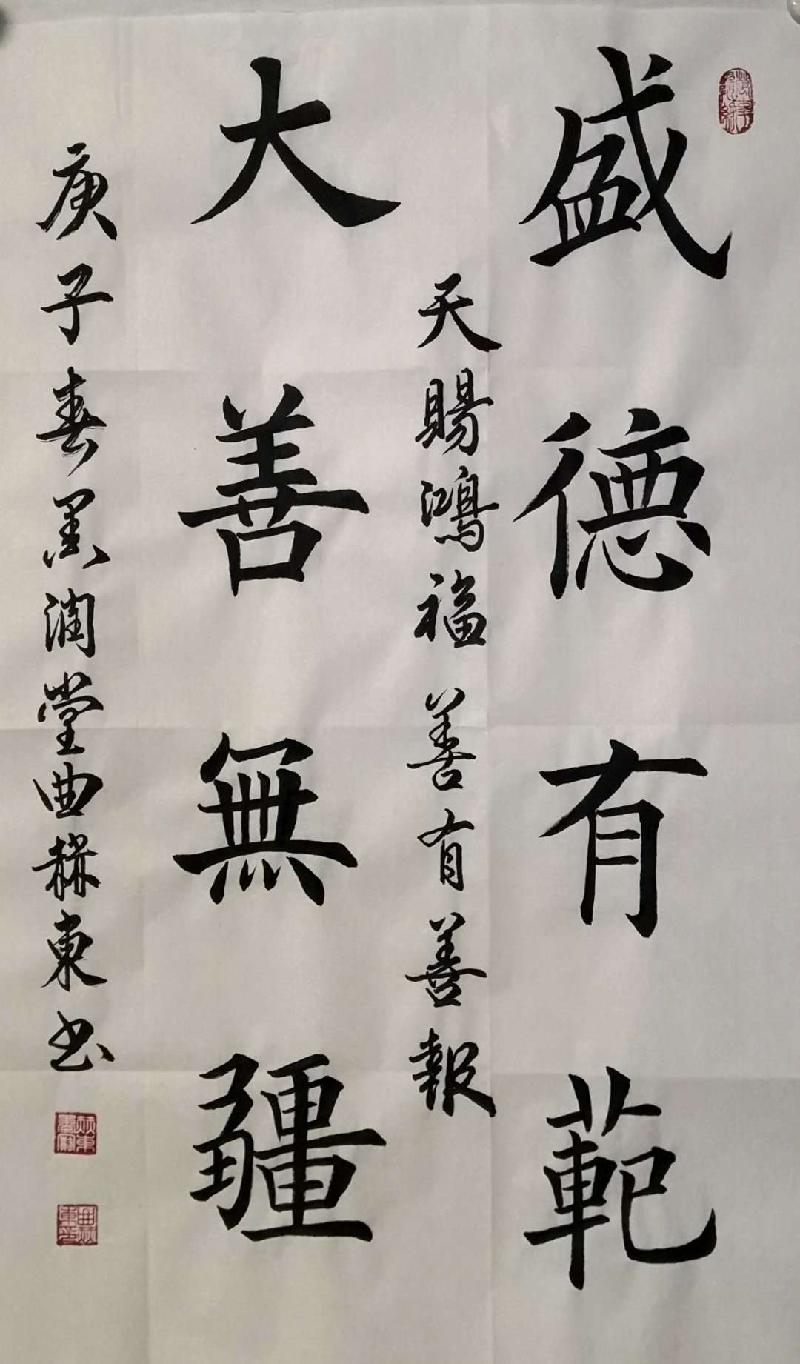 盛德有範
天賜鴻福善有善報
大善無疆
庚子春墨潤堂曲赫東书